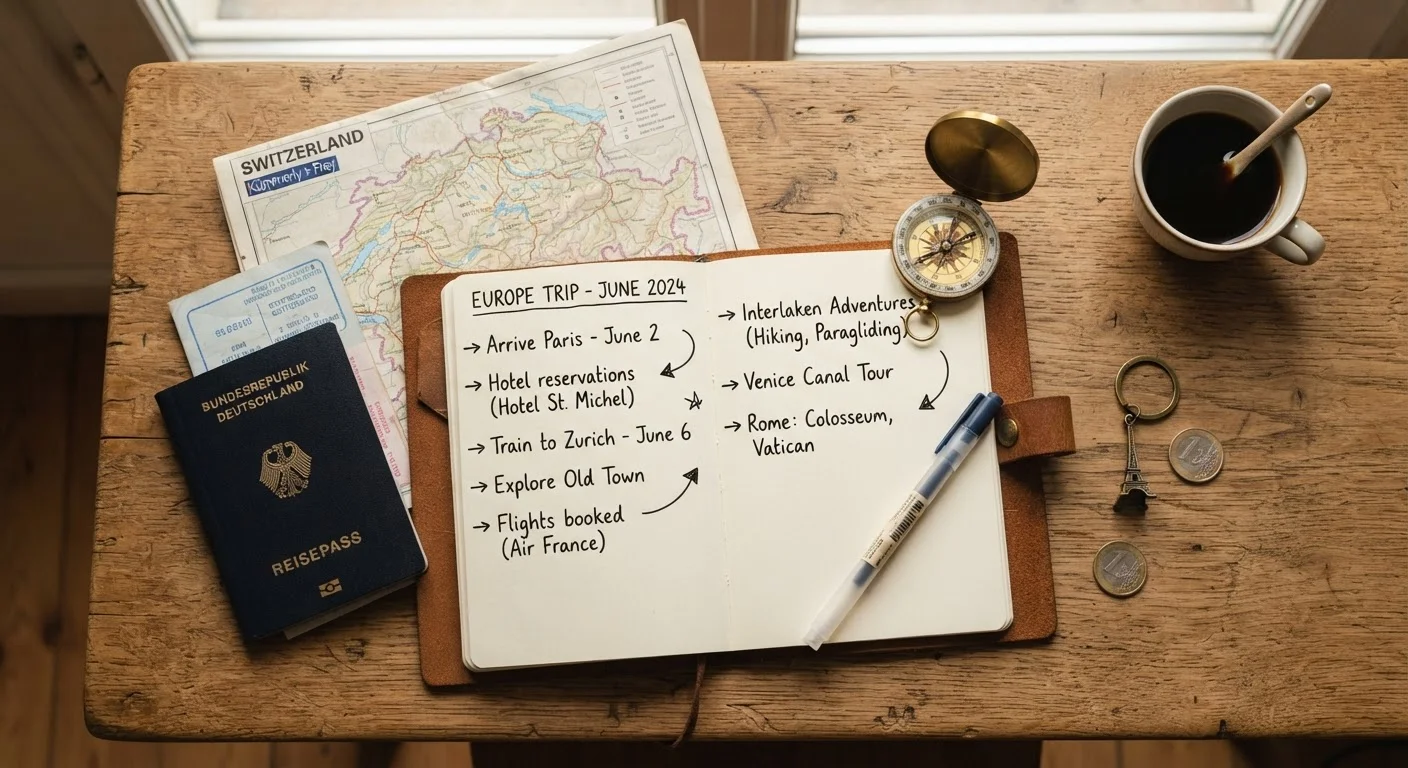 SWITZERLAND
Kümmerly + Frey
BUNDESREPUBLIK
DEUTSCHLAND
REISEPASS
EUROPE TRIP - JUNE 2024
→ Arrive Paris - June 2
→ Hotel reservations
(Hotel St. Michel)
→ Train to Zurich - June 6
→ Explore Old Town
→ Flights booked
(Air France)
→ Interlaken Adventures
(Hiking, Paragliding)
→ Venice Canal Tour
→ Rome: Colosseum,
Vatican